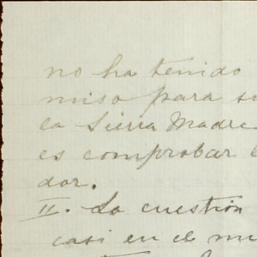 no ha tenido
miso para
la Sierra Madre
es comprobar
dor.
II. La cuestión
casi en el